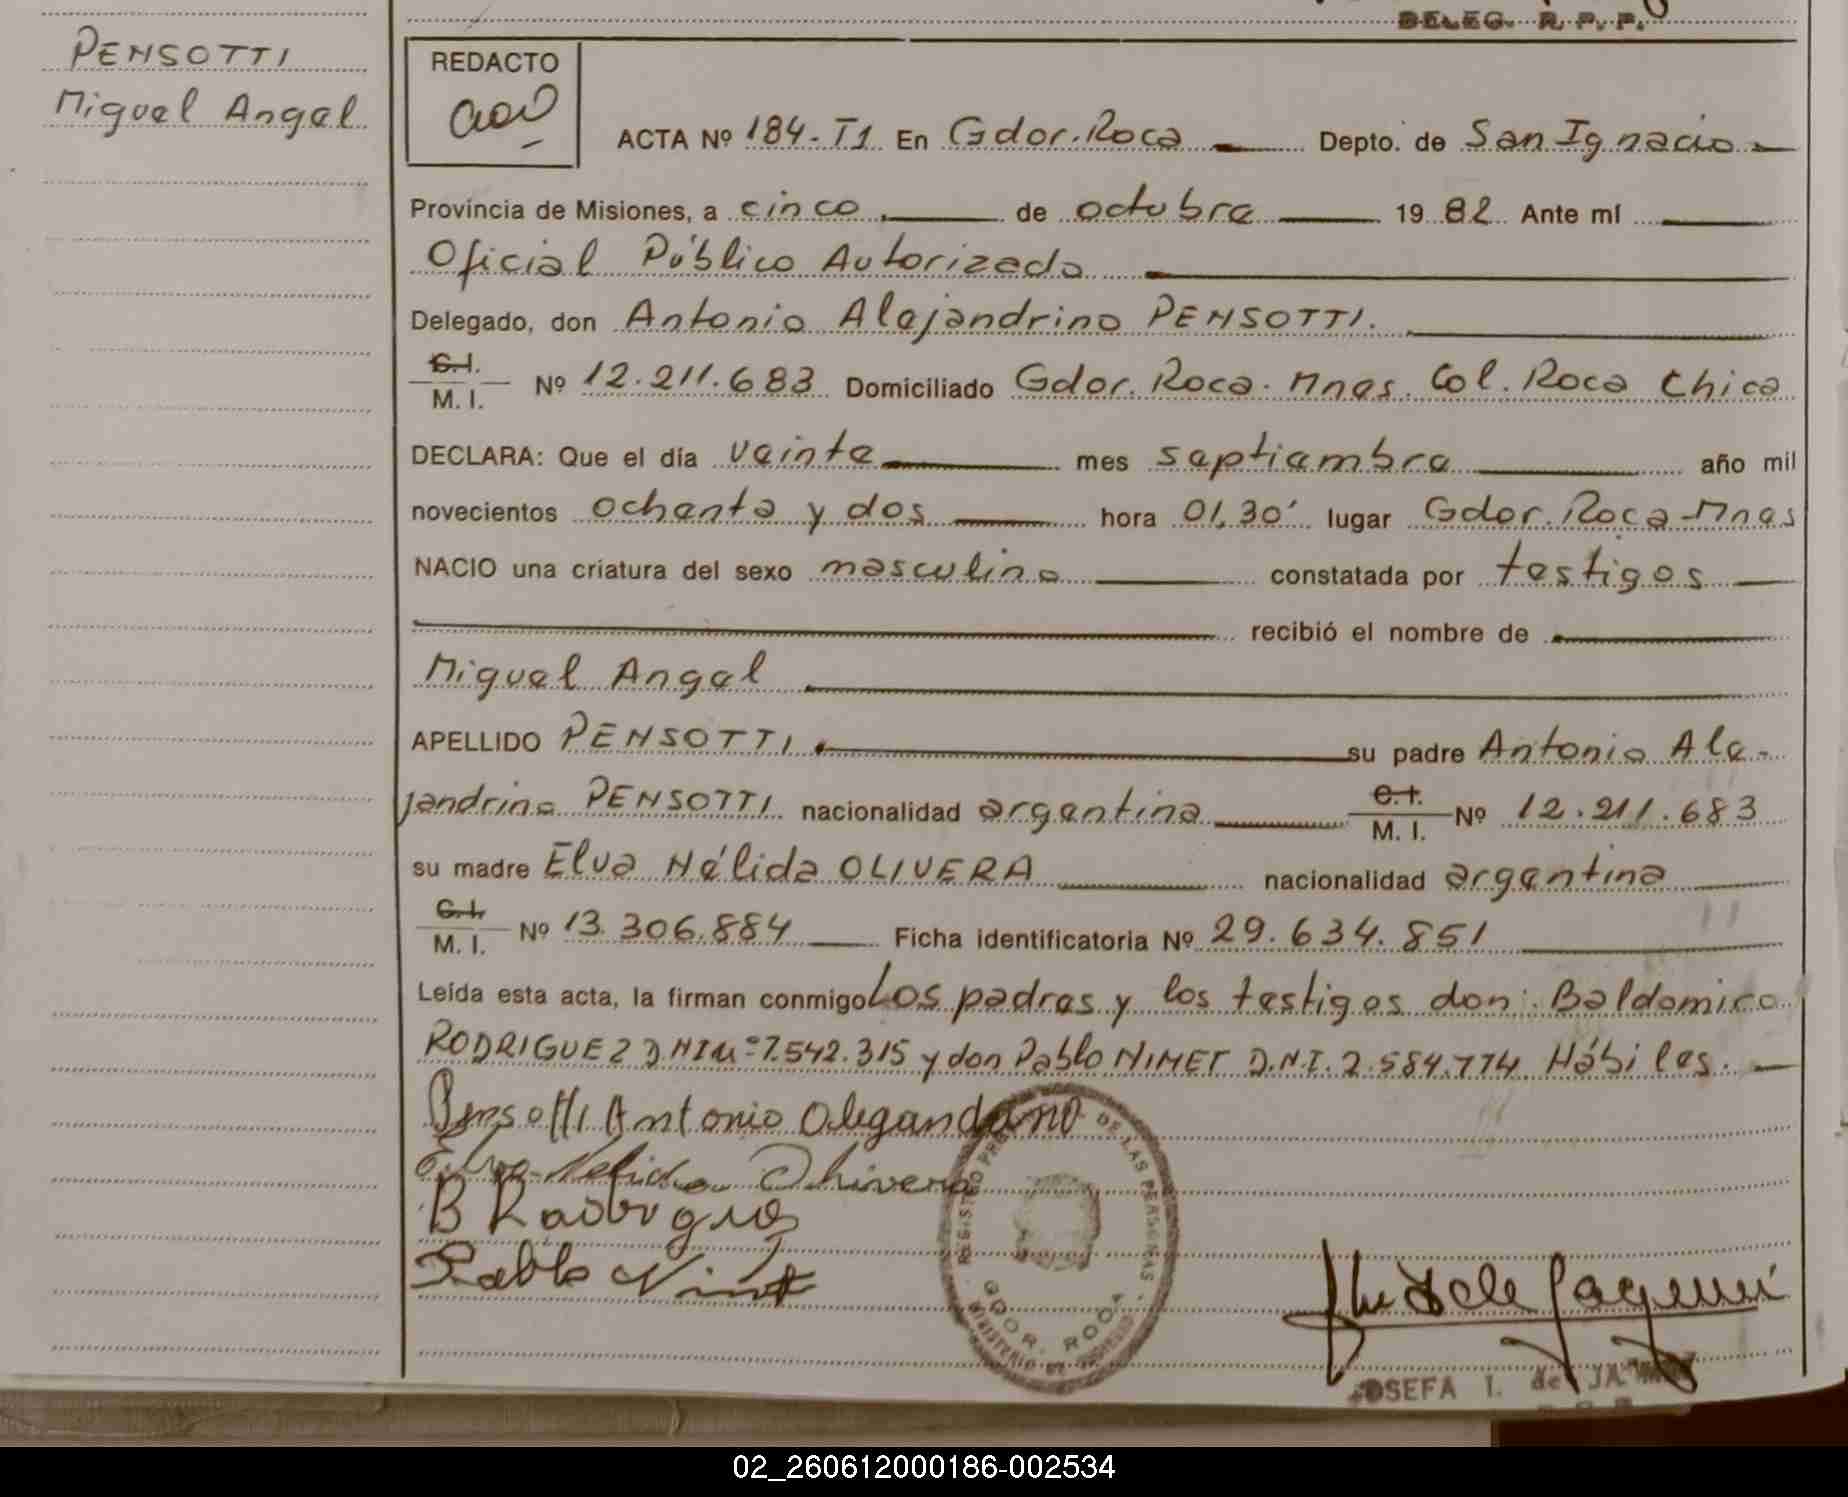 DELEG. R. P. P.
PENSOTTI
Miguel Angel
REDACTO
ACTA Nº 184-T1 En Gdor. Roca Depto. de San Ignacio
Provincia de Misiones, a cinco de octubre 19 82 Ante mí
Oficial Público Autorizado
Delegado, don Antonio Alejandrino PENSOTTI.
C.I.
M. I. Nº 12.211.683 Domiciliado Gdor. Roca. Mnes. Col. Roca Chica
DECLARA: Que el día veinte mes septiembre año mil
novecientos ochenta y dos hora 01,30' lugar Gdor. Roca-Mnes
NACIO una criatura del sexo masculino constatada por testigos
recibió el nombre de
Miguel Angel
APELLIDO PENSOTTI. su padre Antonio Ale-
jandrino PENSOTTI nacionalidad argentina C.I. M. I. Nº 12.211.683
su madre Elva Nélida OLIVERA nacionalidad argentina
C.I.
M. I. Nº 13.306.884 Ficha identificatoria Nº 29.634.851
Leída esta acta, la firman conmigo Los padres y los testigos don: Baldomiro
RODRIGUEZ D.NI Nº 7.542.315 y don Pablo NIMET D.N.I. 2.584.774 Hábiles.
Pensotti Antonio Alegandrino
Elva Nelida Olivera
B Rodrigues
Pablo Nimet
REGISTRO DE LAS PERSONAS
GDOR. ROCA
MINISTERIO DE GOBIERNO
JOSEFA I. de
02_260612000186-002534